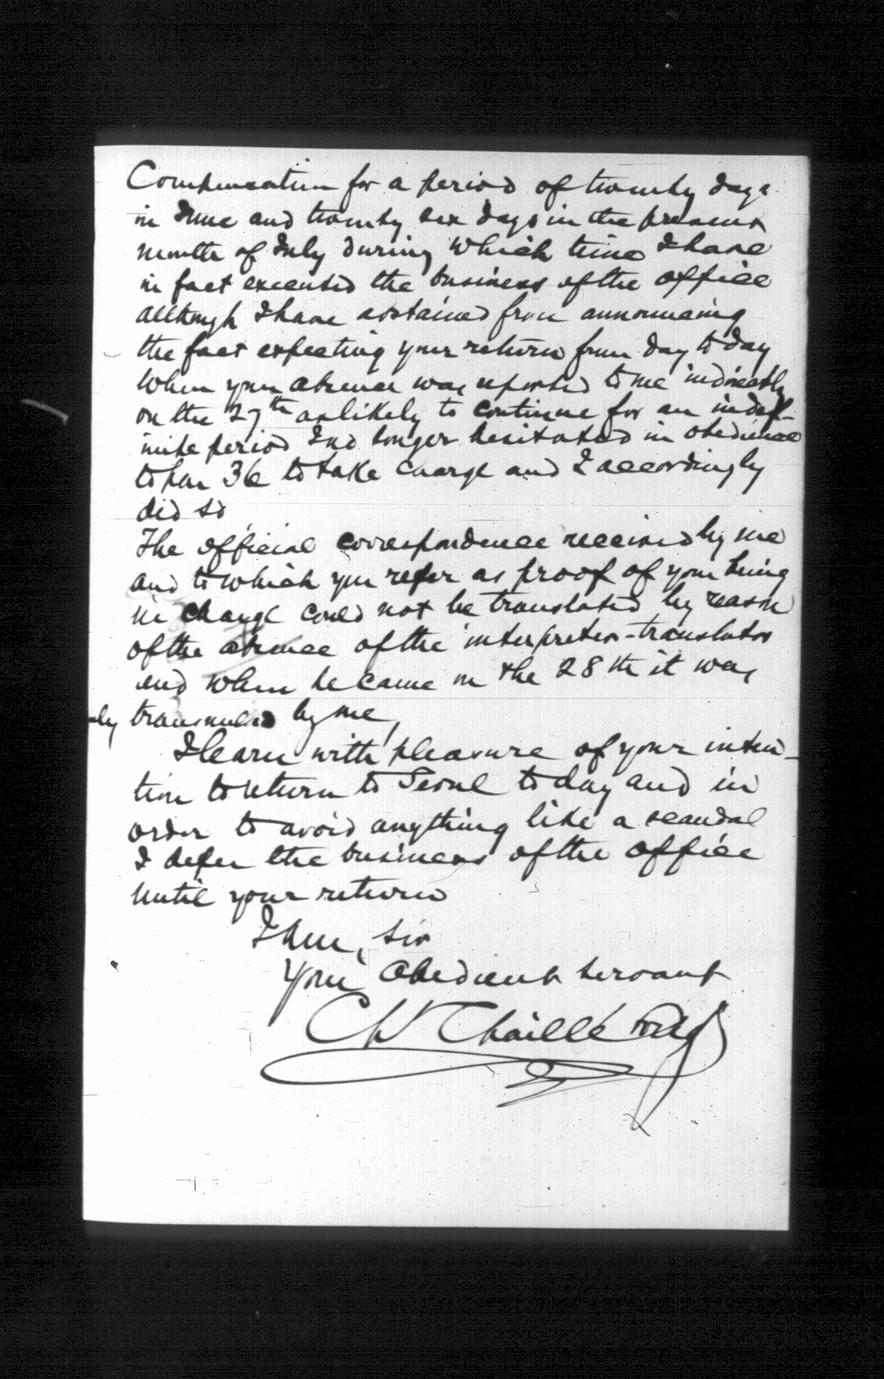 Compensation for a period of twenty days
in June and twenty six days in the present
month of July during which time I have
in fact executed the business of the office
although I have abstained from announcing
the fact expecting your return from day to day
When your absence was reported to me indirectly
on the 27th as likely to continue for an indef-
inite period I no longer hesitated in obedience
to par 36 to take charge and I accordingly
did so
The official correspondence received by me
and to which you refer as proof of your being
in charge could not be translated by reason
of the absence of the interpreter-translator
and when he came on the 28th it was
transmitted by me,
I learn with pleasure of your inten-
tion to return to Seoul today and in
order to avoid anything like a scandal
I defer the business of the office
until your return
I am, Sir
Your Obedient Servant
Ch Chaillé Long